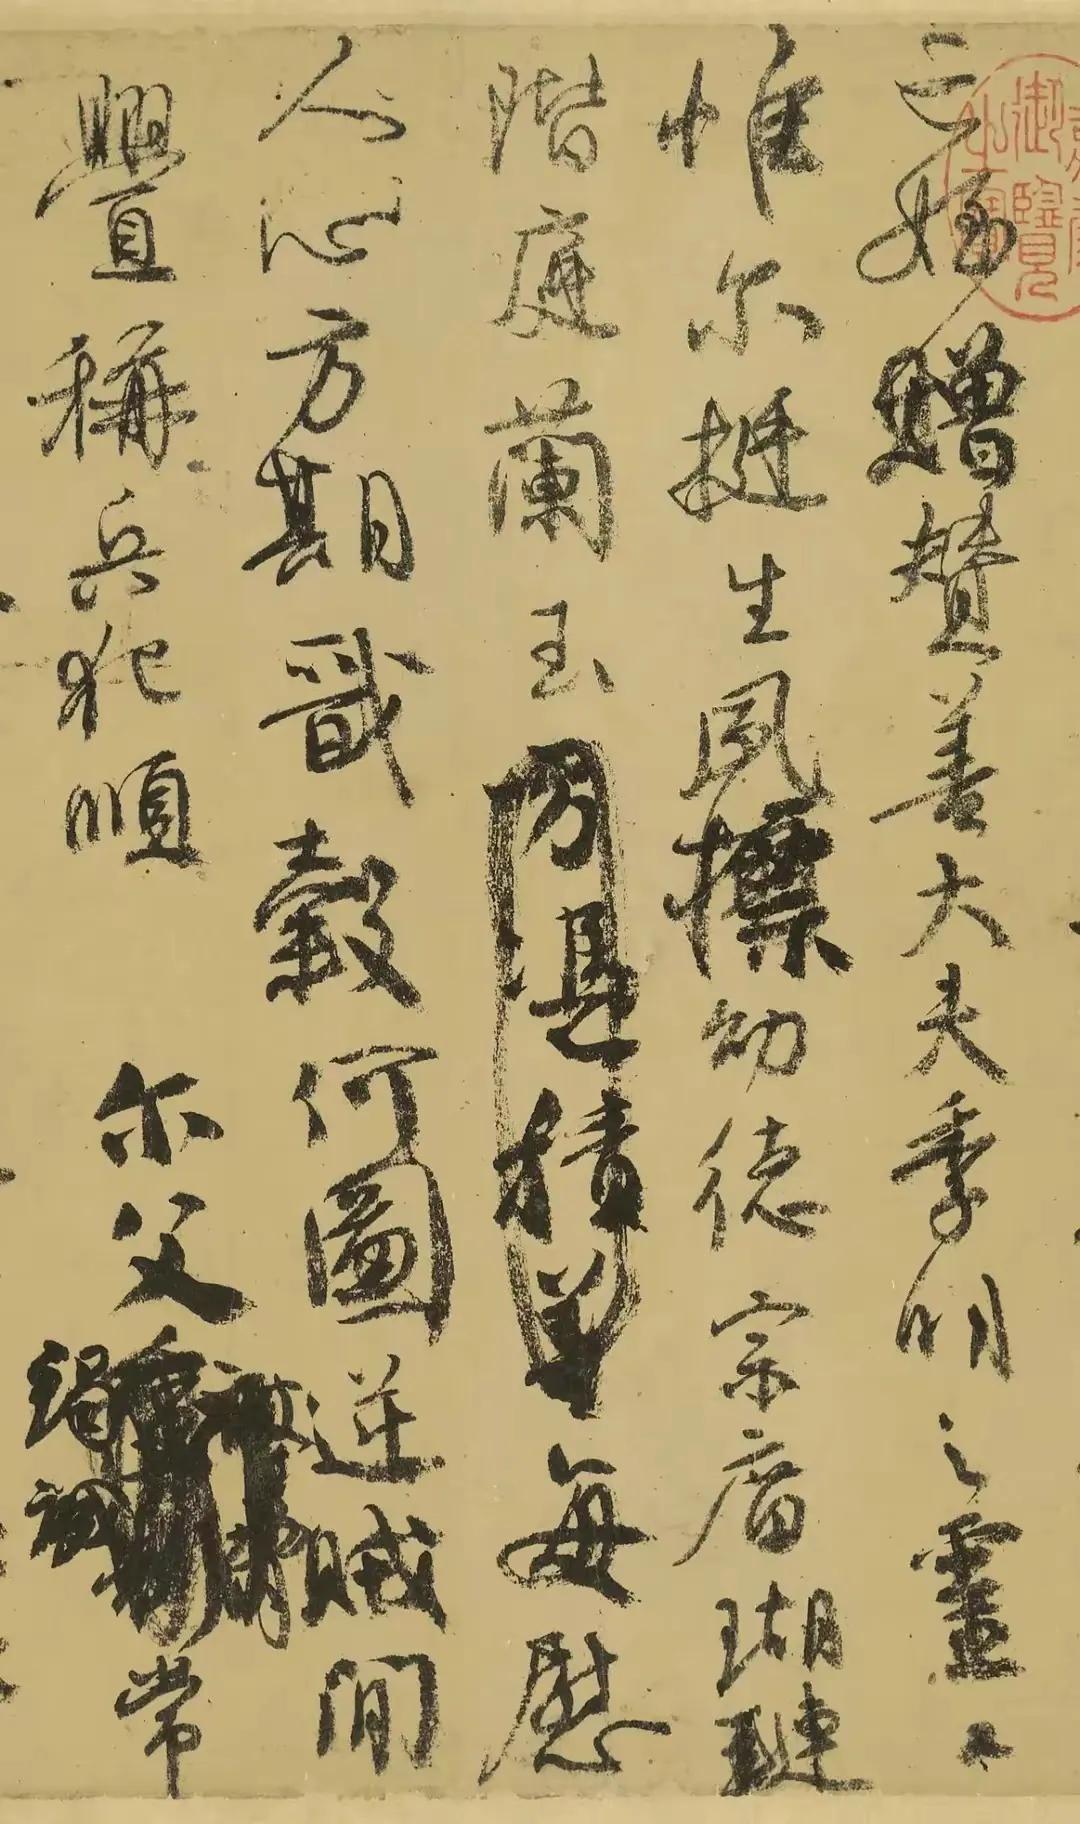 亡姪贈贊善大夫季明之靈曰
惟尔挺生夙標幼德宗廟瑚璉
階庭蘭玉方憑積善每慰
人心方期戩穀何圖逆賊間
釁稱兵犯順尔父竭誠常